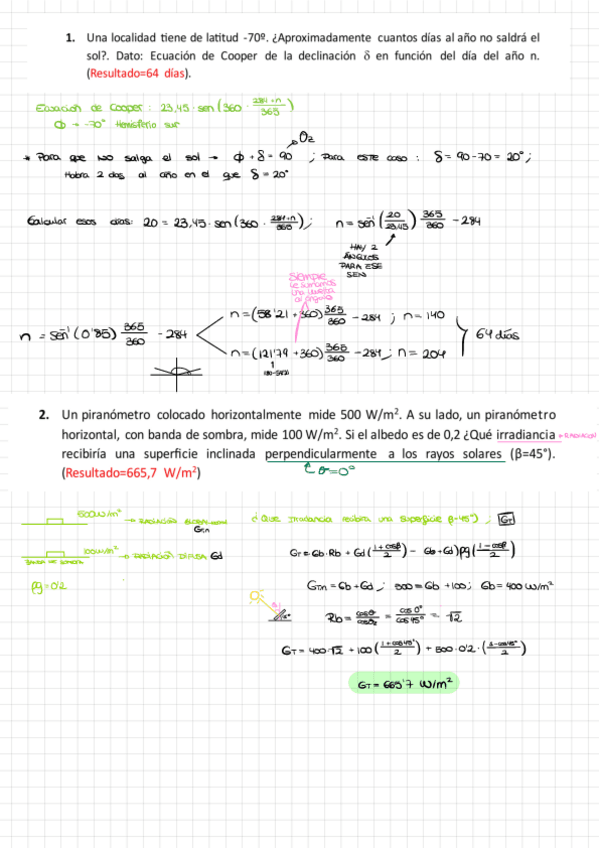 1. Una localidad tiene de latitud -70º. ¿Aproximadamente cuantos días al año no saldrá el
sol?. Dato: Ecuación de Cooper de la declinación δ en función del día del año n.
(Resultado=64 días).
Ecuación de Cooper: 23,45 · sen(360 · 284+n/365)
Φ = -70° Hemisferio sur
* Para que no salga el sol → Φ + δ = 90 ; Para este caso: δ = 90-70 = 20°;
Θz
Habra 2 días al año en el que δ = 20°
Calcular esos días: 20 = 23,45 · sen(360 · 284+n/365); n = sen⁻¹(20/23,45) 365/360 - 284
HAY 2
ÁNGULOS
PARA ESE
SEN
Siempre
le sumamos
una vuelta
al ángulo
n = (58'21 + 360) 365/360 - 284 ; n = 140
n = sen⁻¹(0'85) 365/360 - 284
64 días
n = (121'79 + 360) 365/360 - 284; n = 204
2. Un piranómetro colocado horizontalmente mide 500 W/m². A su lado, un piranómetro
horizontal, con banda de sombra, mide 100 W/m². Si el albedo es de 0,2 ¿Qué irradiancia
recibiría una superficie inclinada perpendicularmente a los rayos solares (β=45°).
(Resultado=665,7 W/m²)
θ=0°
500W/m² → RADIACIÓN GLOBAL
¿Que Irradiancia recibira una superficie β=45°) ; GT
100W/m² → RADIACIÓN DIFUSA Gd
BANDA DE SOMBRA
GT = Gb·Rb + Gd(1+cosβ/2) - Gb+Gd)ρg(1-cosβ/2)
ρg=0'2
Gb+Gd ; 500=Gb+100; Gb=400 W/m²
Rb = cosθ/cosθz = cos 0°/cos 45° = √2
GT = 400·√2 + 100(1+cos45°/2) + 500·0'2·(1-cos45°/2)
GT = 665'7 W/m²